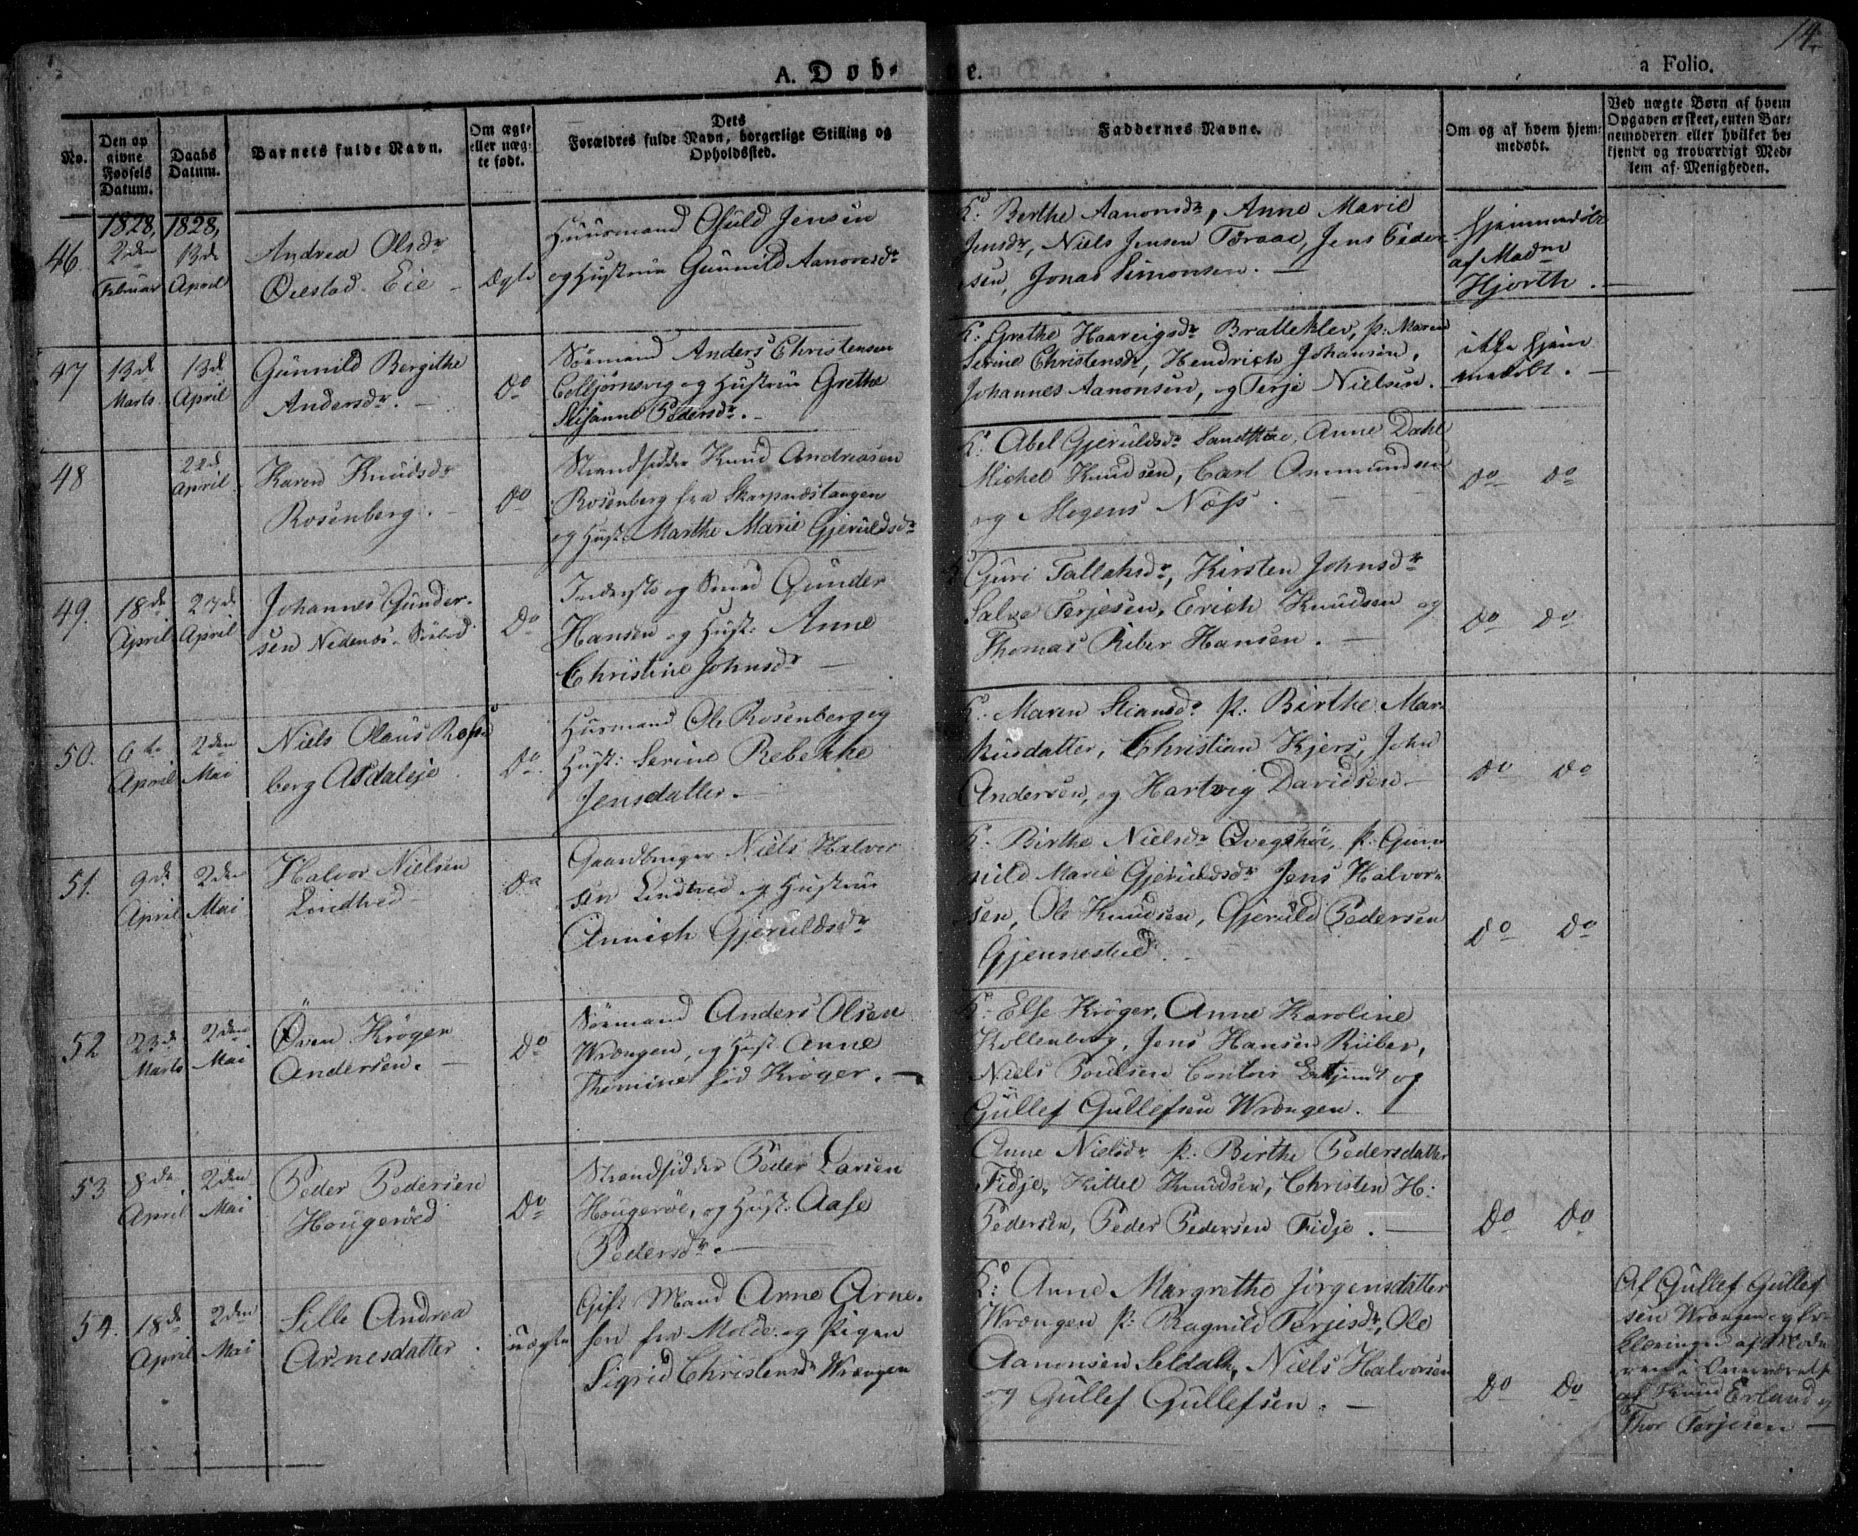 14.
A. Døb-
e.
a Folio.
No.
Den opgivne Fødsels Datum.
Daabs Datum.
Barnets fulde Navn.
Om ægte eller uægte født.
Dets Forældres fulde Navn, borgerlige Stilling og Opholdssted.
Faddernes Navne.
Om og af hvem hjemmedøbt.
Ved uægte Børn af hvem Opgaven er skeet, enten Barnemoderen eller hvilket bekjendt og troværdigt Medlem af Menigheden.
1828, 1828,
46
2den Februar
13de April
Andrea Olsdr
Øiestad Eie
Ægte
Huusmand Oluld Jensen
og Hustrue Gunnild Aanonsdr
K: Berthe Aanonsdr, Anne Marie
Jensdr, Niels Jensen Toraae, Jens Peder-
sen, Jonas Simonsen.
Hjemmedøbt
af Madm
Hjorth.
47
13de Marts
13de April
Gunnild Bergithe
Andersdr.
Do
Sømand Anders Christensen
Colbjørnsvig og Hustrue Grethe
Susanne Pedersdr.
K: Grethe Haareigsdr Brattekler, p: Maren
Serine Christensdr, Hendrich Johansen,
Johannes Aanonsen, og Terje Nielsen.
ikke hjem
medøbt.
48
22de April
Karen Knudsdr
Rosenberg.
Do
Strandsidder Knud Andreasen
Rosenberg fra Skarpnæstangen
og Hust: Marthe Marie Gjeruldsdr
K: Abel Gjeruldsdr Sandstøe, Anne Dahl
Michel Knudsen, Carl Ommundsen
og Mogens Næss.
Do Do
49.
18de April
27de April
Johannes Gunder-
sen Nedenes
Do
Inderste og Smed Gunder
Hansen og Hust: Anne
Christine Johnsdr
K: Guri Tallaksdr, Kirsten Johnsdr
Salve Terjesen, Erich Knudsen og
Thomas Riber Hansen.
Do Do
50.
6te April
2den Mai
Niels Olaus Rosen
berg Asdaleje
Do.
Husmand Ole Rosenberg og
Hust: Serine Rebekke
Jensdatter.
K: Maren Stiansdr p: Birthe Mar-
kusdatter, Christian Kjers, John
Andersen, og Hartvig Davidsen
Do Do
51.
9de April
2den Mai
Halvor Nielsen
Lindtved
Do
Gaardbruger Niels Halvor
sen Lindtved og Hustrue
Annich Gjeruldsdr
K: Birthe Nielsdr Qvegshøi, p: Gun
nild Marie Gjeruldsdr Jens Halvor-
sen, Ole Knudsen, Gjeruld Pedersen
Gjennestad.
Do Do
52
23de Marts
2den Mai
Oven Krøger
Andersen.
Do
Sømand Anders Olsen
Wrængen, og Hust Anne
Thomine fød Krøger.
K: Else Krøger, Anne Karoline
Kollenborg, Jens Hansen Riiber,
Niels Poulsen Contoir Betjendt og
Gullef Gullefsen Wrængen.
53
8de April
2den Mai
Peder Pedersen
Hougerøed
Do
Strandsidder Peder Larsen
Hougerøe, og Hust: Aase
Pedersdr.
Anne Nielsdr p: Birthe Pedersdatter
Fidje, Kittel Knudsen, Christen H:
Pedersen, Peder Pedersen Fidje.
Do Do
54.
18de April
2den Mai
Sille Andrea
Arnesdatter.
uægte
Gift Mand Arne Arne-
sen fra Molde og Pigen
Sigrid Christensdr Wrængen
K: Anne Margrethe Jørgensdatter
Wrængen p: Ragnild Terjesdr, Ole
Aanonsen Seldalh, Niels Halvorsen
og Gullef Gullefsen.
Do Do
Af Gullef Gullef
sen Wrængen og Er-
klæringen af Mode
ren i Overværelse
af Knud Erland og
Thor Terjesen